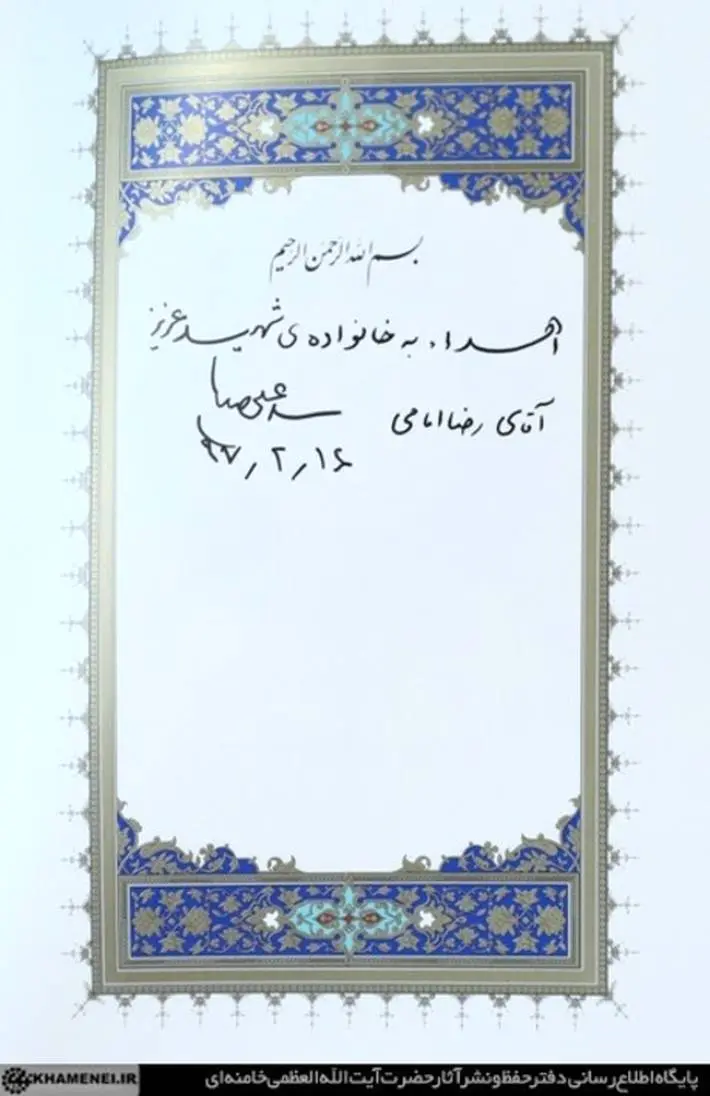 بسم الله الرحمن الرحیم
اهداء به خانواده‌ی شهید عزیز
آقای رضا امامی
سید علی خامنه‌ای
۹۷/۲/۱۶
KHAMENEI.IR
پایگاه اطلاع رسانی دفتر حفظ و نشر آثار حضرت آیت الله العظمی خامنه‌ای